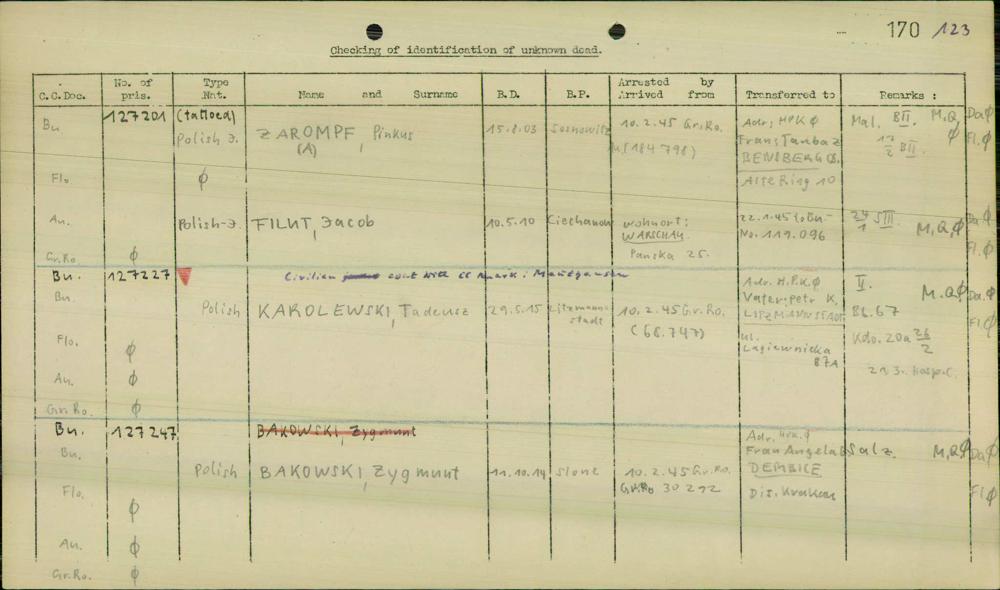 170 123
Checking of identification of unknown dead.
C.C.Doc. No. of pris. Type Nat. Name and Surname B.D. B.P. Arrested by Arrived from Transferred to Remarks :
127201 (tattoed)
Bu. Polish J. ZAROMPF, Pinkus 15.8.03 Sosnowitz 10.2.45 Gr.Ro. Adr, HPKφ Mal. BII. M,Q φ Da.φ
(A) (184798) Frans Tauba Z 17/2 BII. Fl.φ
BENSBERG
Flo φ Alte Ring 10
Au. Polish-J. FILUT, Jacob 10.5.10 Ciechanow wohnort: 22.1.45 to Bu- 24/1 SIII. M,Q,φ Da.φ
WARSCHAU. No. 119.096
Gr.Ro. φ Panska 25. Fl.φ
Bu. 127227 Civilian coat with CC mark: Mauthausen
Bu. Polish KAROLEWSKI, Tadeusz 29.5.15 Litzmann-stadt 10.2.45 Gr.Ro. Adr. H.P.K.φ II. M.Qφ Da.φ
(68.747) Vater: Petr K. Bl.67
LITZMANNSTADT Fl.φ
Flo. φ ul. Kdo. 20a 26/2
Lagiewnicka
Au. φ 87A 21.3. Hosp.
Gr.Ro. φ
Bu. 127247 BAKOWSKI, Zygmunt
Bu. Adr. φ
Polish BAKOWSKI, Zygmunt 11.10.14 Slone 10.2.45 Gr.Ro. Frau Angela B Salz. M,Qφ Da.φ
DEMBICE
Flo. φ Gr.Ro 30292 Dis. Krakau Fl.φ
Au. φ
Gr.Ro. φ